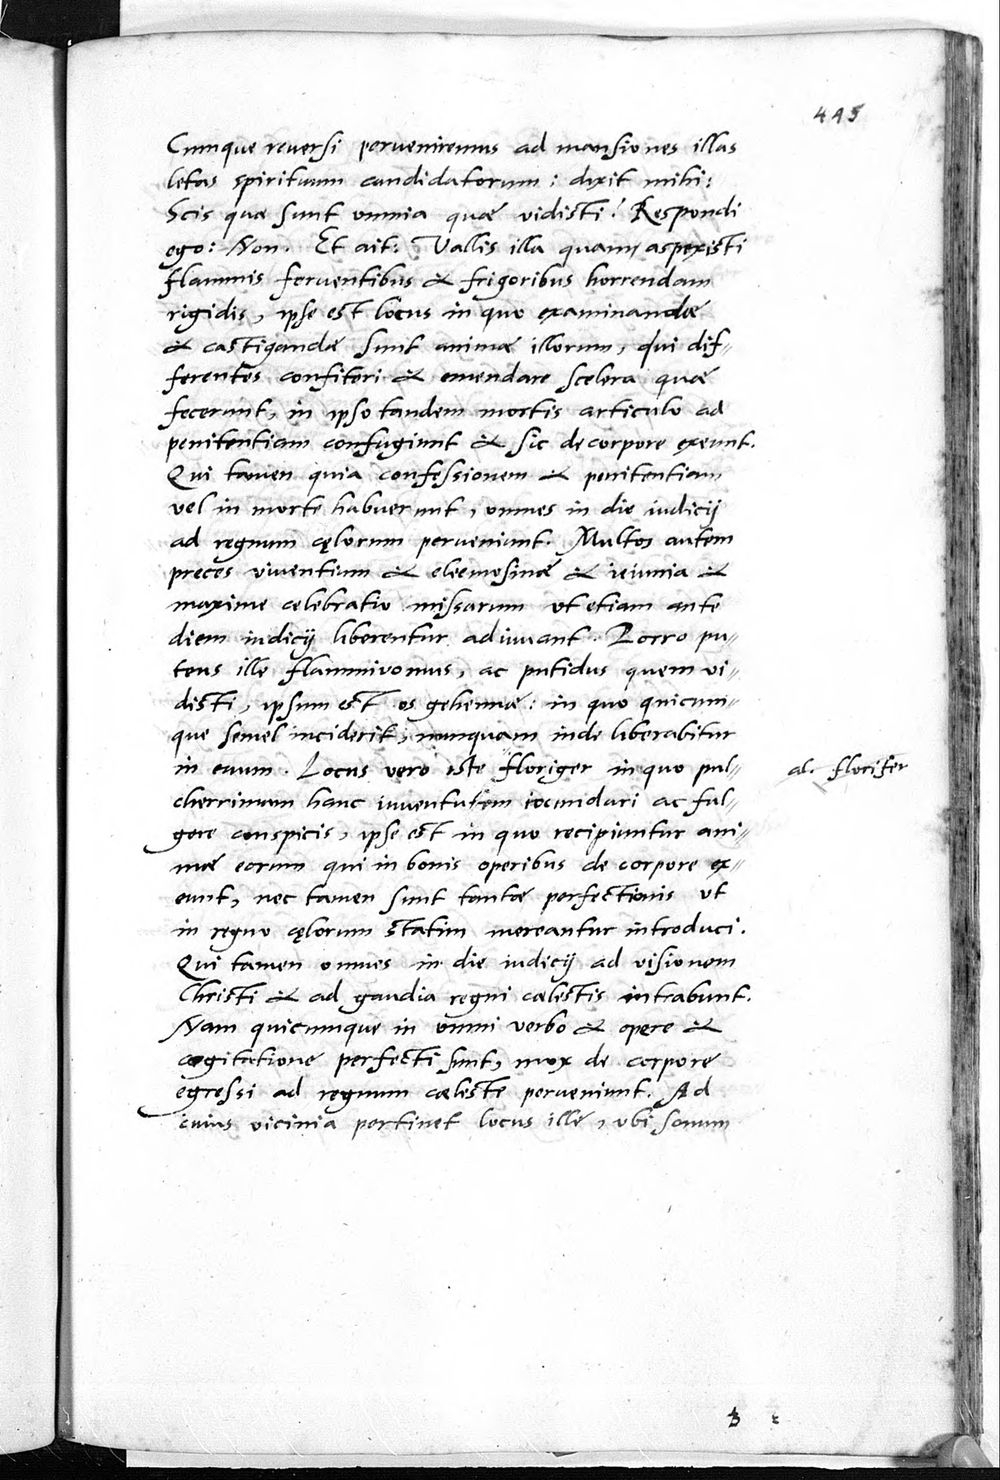 415
Cumque reversi perveniremus ad mansiones illas
letas spirituum candidatorum : dixit mihi :
Scis quae sunt omnia quae vidisti? Respondi
ego : Non. Et ait : Vallis illa quam aspexisti
flammis ferventibus & frigoribus horrendam
rigidis, ipse est locus in quo examinandae
& castigandae sunt animae illorum, qui dif„
ferentes confiteri & emendare scelera quae
fecerunt, in ipso tandem mortis articulo ad
penitentiam confugiunt & sic de corpore exeunt.
Qui tamen quia confessionem & penitentiam
vel in morte habuerunt, omnes in die iudicij
ad regnum cęlorum perveniunt. Multos autem
preces viventium & eleemosinae & ieiunia &
maxime celebratio missarum ut etiam ante
diem iudicij liberentur adiuvant. Porro pu„
teus ille flammivomus, ac putidus quem vi„
disti, ipsum est os gehennae : in quo quicun„
que semel inciderit, nunquam inde liberabitur
in evum. Locus vero iste floriger in quo pul„
al. florifer
cherrimam hanc iuventutem iocundari ac ful„
gore conspicis, ipse est in quo recipiuntur ani„
mae eorum qui in bonis operibus de corpore ex„
eunt, nec tamen sunt tantae perfectionis ut
in regno cęlorum statim mereantur introduci.
Qui tamen omnes in die iudicij ad visionem
Christi & ad gaudia regni caelestis intrabunt.
Nam quicumque in omni verbo & opere &
cogitatione perfecti sunt, mox de corpore
egressi ad regnum caeleste perveniunt. Ad
cuius vicinia pertinet locus ille, ubi sonum